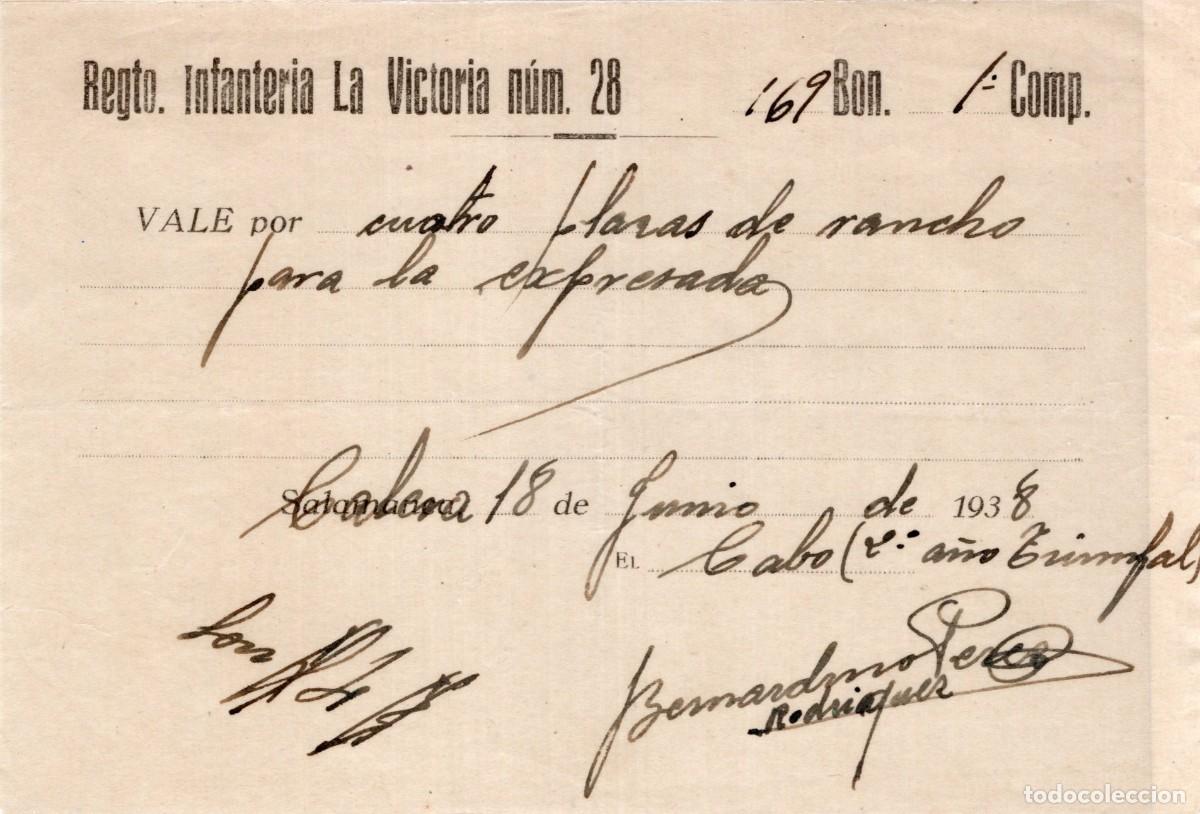 Regto. Infanteria La Victoria núm. 28 169 Bon. 1ª Comp.
VALE por cuatro plazas de rancho
para la expresada
Calera 18 de Junio de 1938
EL Cabo (2º año Triunfal)
Son #4#
Bernardino Perez
Rodriguez
todocoleccion